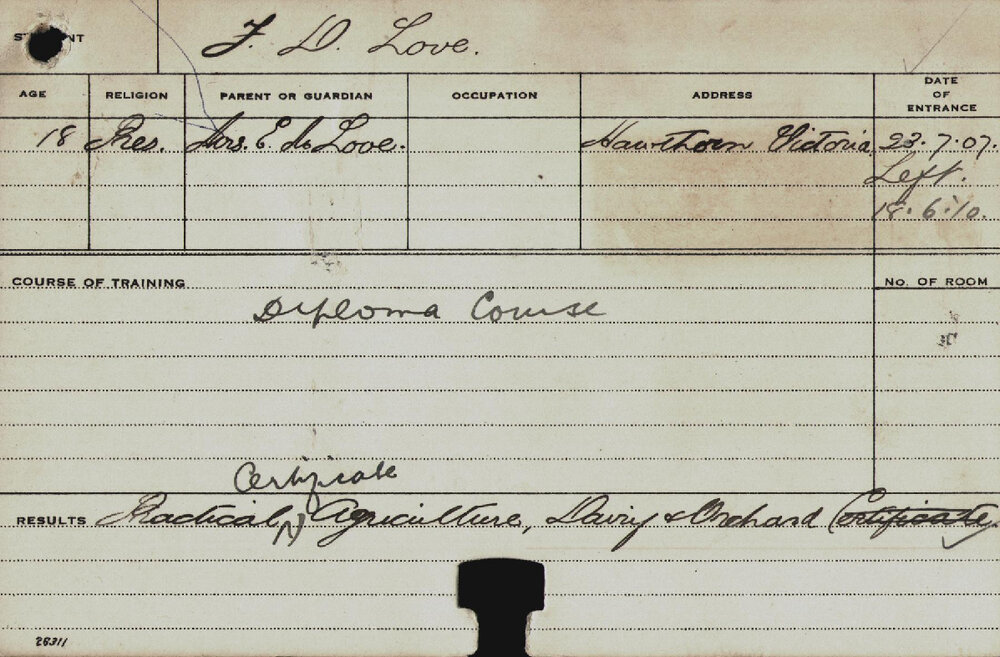 F. D. Love.
AGE RELIGION PARENT OR GUARDIAN OCCUPATION ADDRESS DATE OF ENTRANCE
18 Pres. Mrs. E. Love. Hawthorn Victoria 23.7.07.
Left.
18.6.10.
COURSE OF TRAINING No. OF ROOM
Diploma Course
Certificate
RESULTS Practical Agriculture, Dairy & Orchard Certificate
26311